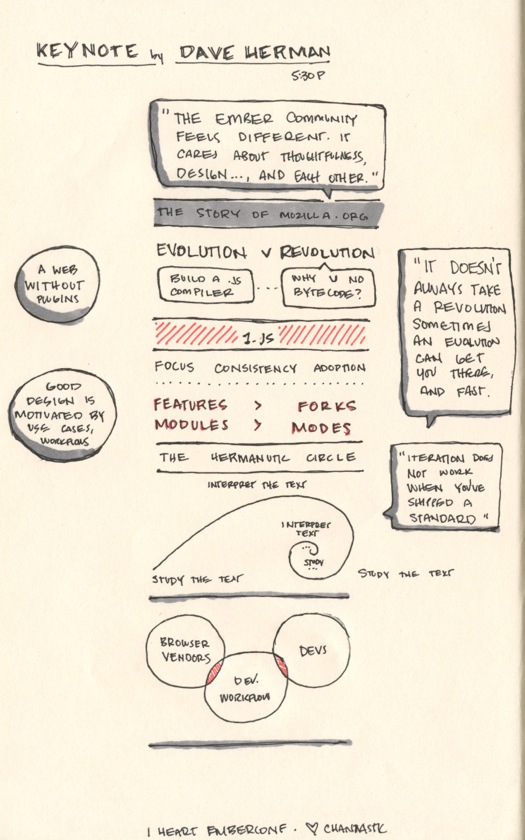 KEYNOTE by DAVE HERMAN
5:30P
"THE EMBER COMMUNITY
FEELS DIFFERENT. IT
CARES ABOUT THOUGHTFULNESS,
DESIGN..., AND EACH OTHER."
THE STORY OF MOZILLA.ORG
EVOLUTION V REVOLUTION
BUILD A .JS
COMPILER
...
WHY U NO
BYTECODE?
A WEB
WITHOUT
PLUGINS
"IT DOESN'T
ALWAYS TAKE
A REVOLUTION
SOMETIMES
AN EVOLUTION
CAN GET
YOU THERE,
AND FAST.
1.JS
FOCUS CONSISTENCY ADOPTION
GOOD
DESIGN IS
MOTIVATED BY
USE CASES,
WORKFLOWS
FEATURES > FORKS
MODULES > MODES
THE HERMANUTIC CIRCLE
"ITERATION DOES
NOT WORK
WHEN YOU'VE
SHIPPED A
STANDARD"
INTERPRET THE TEXT
INTERPRET
TEXT
STUDY
...
STUDY THE TEXT
STUDY THE TEXT
BROWSER
VENDORS
DEV.
WORKFLOW
DEVS
I HEART EMBERCONF. ♡ CHANTASTIC